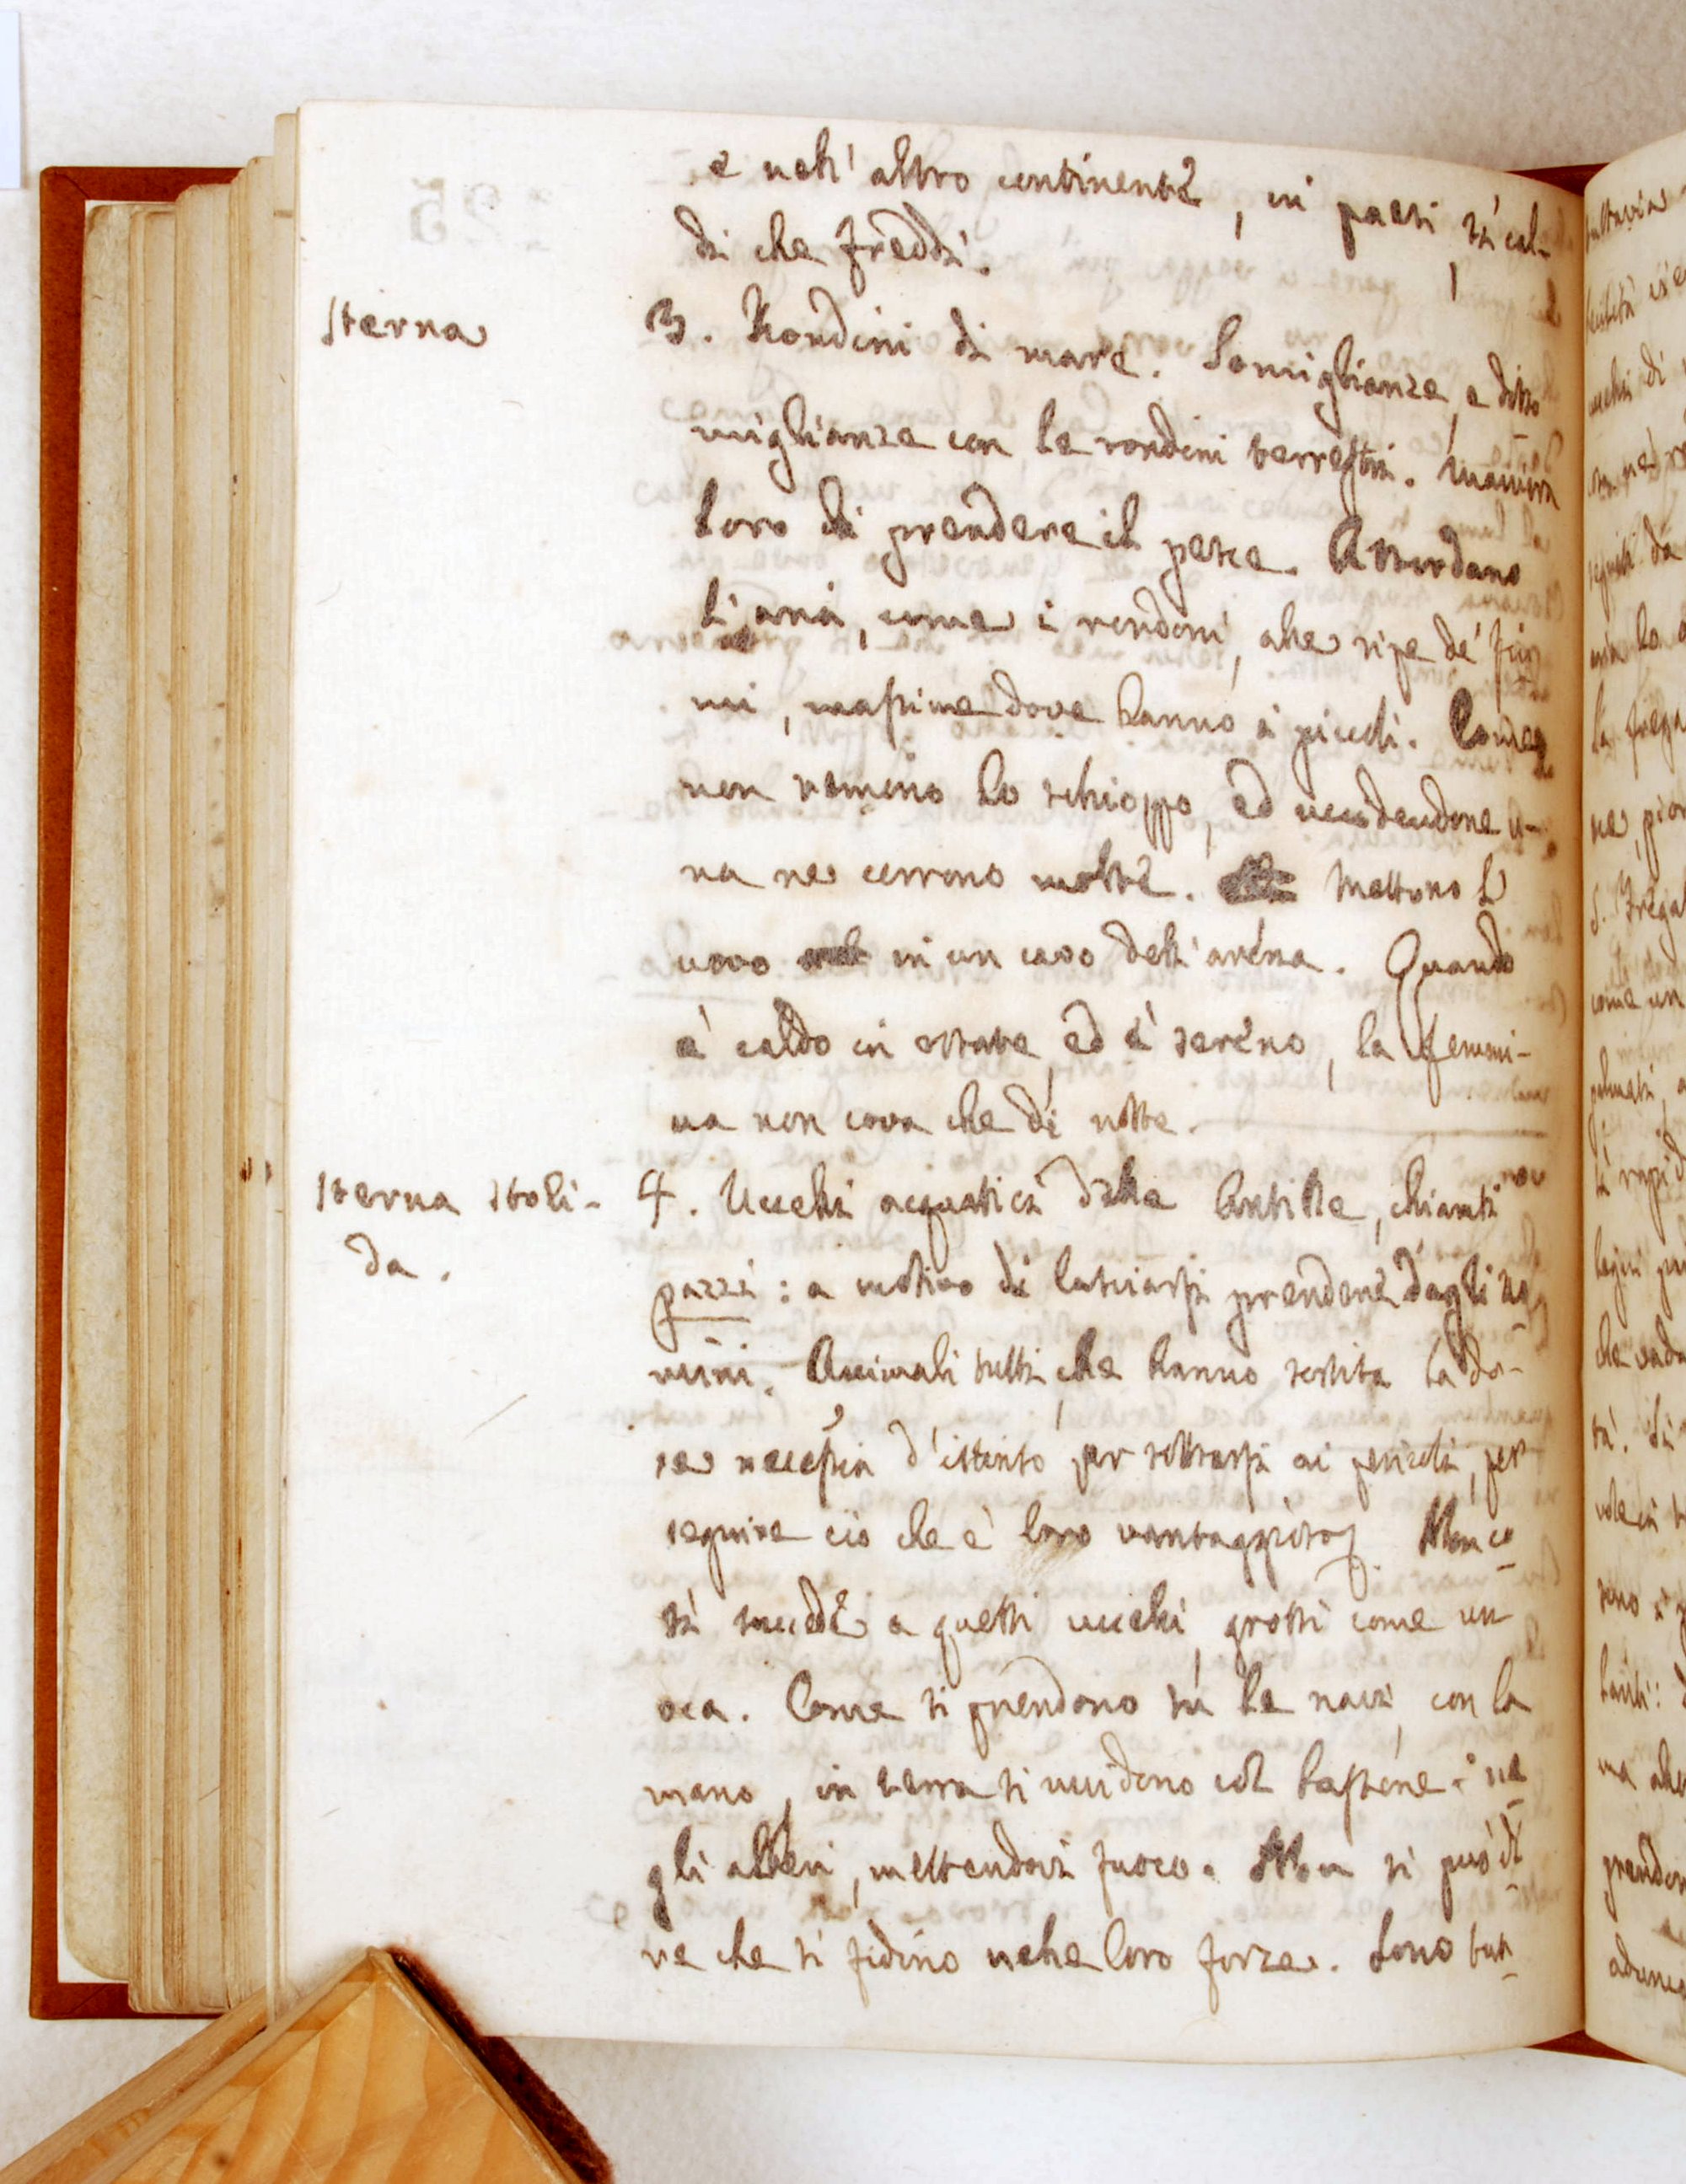 e nell' altro continente, in paesi sì cal-
di che freddi.
Sterna
3. Rondini di mare. Somiglianze, e disso
miglianze con le rondini terrestri. Maniera
loro di prendere il pesce. Assordano
l'aria, come i rondoni, alle ripe de' fiu
mi, massime dove hanno i piccoli. Come
non temino lo schioppo, ed uccidendone u-
na ne corrono molte. Mettono l'
uovo in un cavo dell'arena. Quando
è caldo in estate, ed è sereno, la femmi-
na non cova che di notte.
Sterna stoli-
da.
4. Uccelli acquatici delle Antille, chiamti
pazzi: a motivo di lasciarsi prendere dagli uo
mini. Animali tutti che hanno sortita la do-
se necessria d'istinto per sottrarsi ai pericoli, per
seguire ciò che è loro vantaggioso. Non co
sì succede a questi uccelli, grossi come un
oca. Come si prendono sù le navi con la
mano, in terra si uccidono col bastone: ne
gli alberi, mettendovi fuoco. Non si può di
re che si fidino nelle loro forze. Sono tut